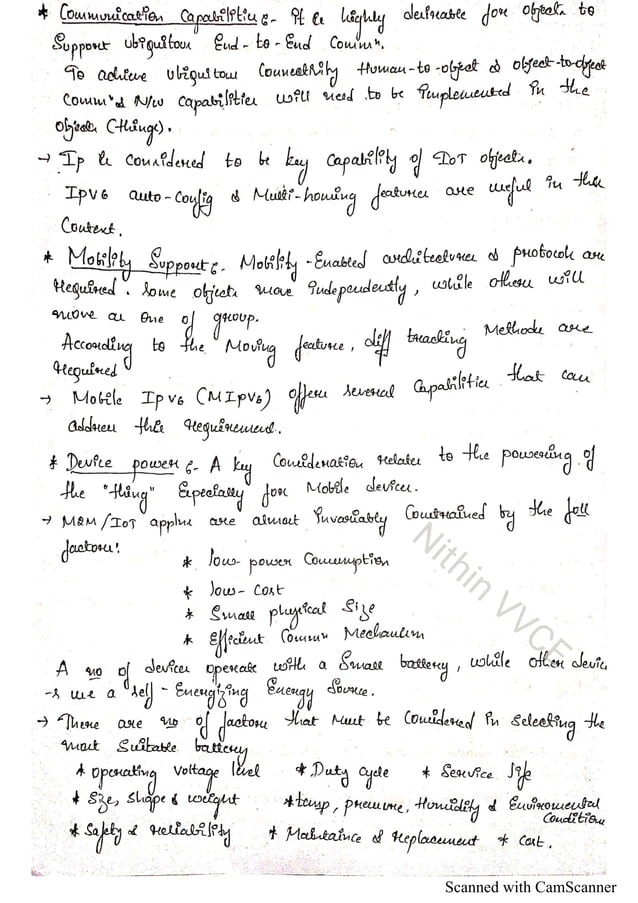 * Communication Capabilities :- It is highly desireable for objects to
Support ubiquitous End-to-End Commn.
To achieve ubiquitous Connectivity Human-to-object & object-to-object
Commn's N/w capabilities will need to be Implemented in the
objects (things).
→ Ip is considered to be key capability of IoT objects.
IPV6 auto-config & Multi-homing features are useful in this
Context.
* Mobility Support :- Mobility-Enabled architectures & protocols are
required. Some objects move independently, while others will
move as one of group.
According to the Moving feature, diff tracking Methods are
required
→ Mobile IPv6 (MIPV6) offers several Capabilities that can
address this requirement.
* Device power :- A key Consideration relates to the powering of
the "thing" Especially for Mobile devices.
→ M2M/IoT applns are almost Invariably Constrained by the foll
factors:
* low-power Consumption
* low-cost
* Small physical Size
* Efficient Commn Mechanism
A no of devices operate with a Small battery, while other devic
-s use a self-Energizing Energy Source.
→ There are no of factors that Must be Considered in selecting the
most Suitable battery
* operating Voltage level * Duty cycle * Service life
* Size, Shape & weight * temp, pressure, Humidity & Enviromental
Conditions
* Safety & reliability * Maintaince & replacement * cost.
Nithin VVCE
Scanned with CamScanner